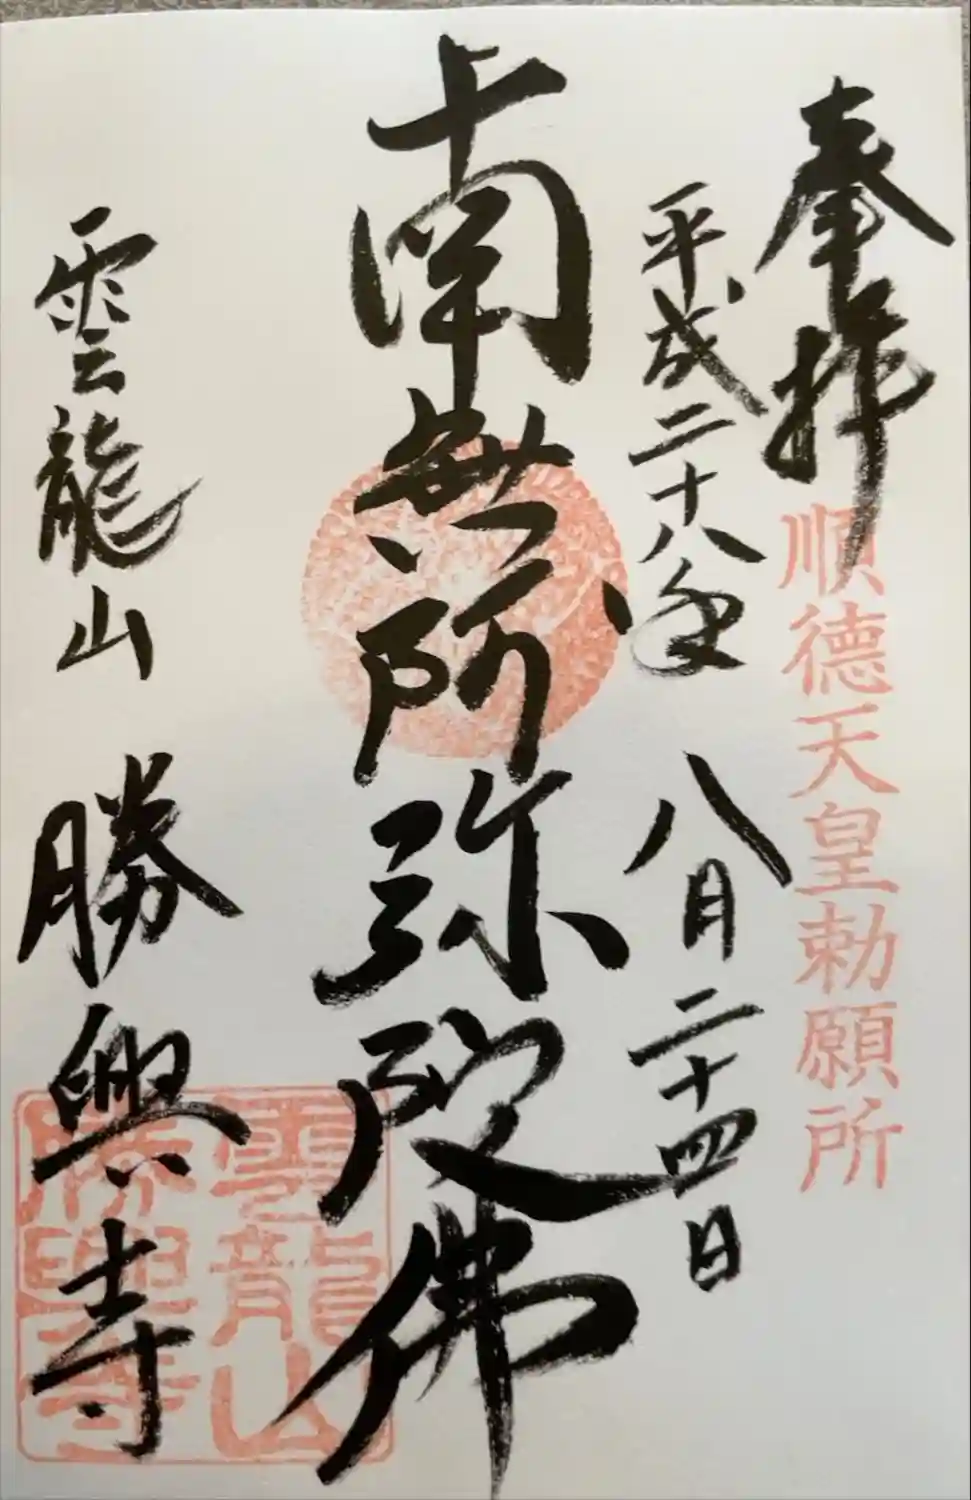 奉拝
順德天皇勅願所
平成二十八年 八月二十四日
南無阿弥陀佛
雲龍山 勝興寺
雲龍山
勝興寺